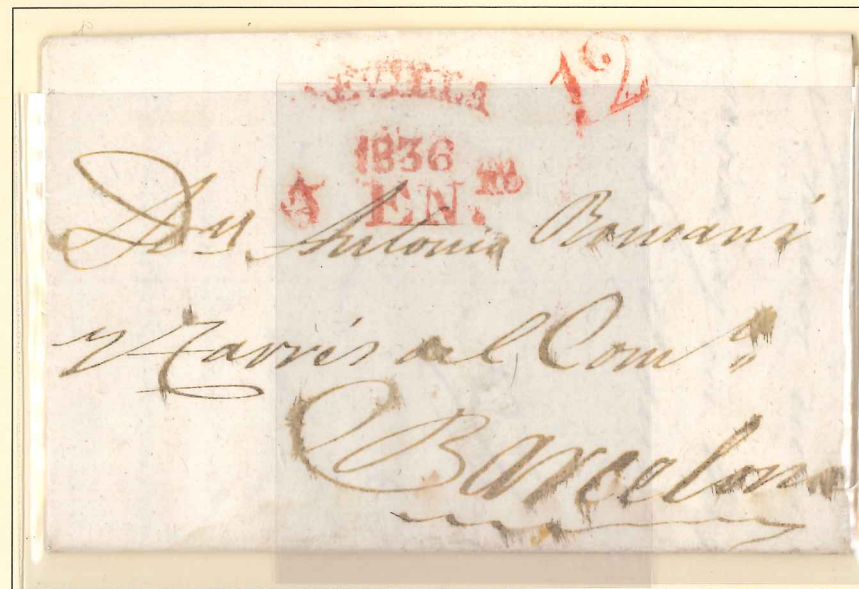 SEVILLA
12
1836
EN.RO
Dn Antonio Romani
y Tarrés del Comº
Barcelona